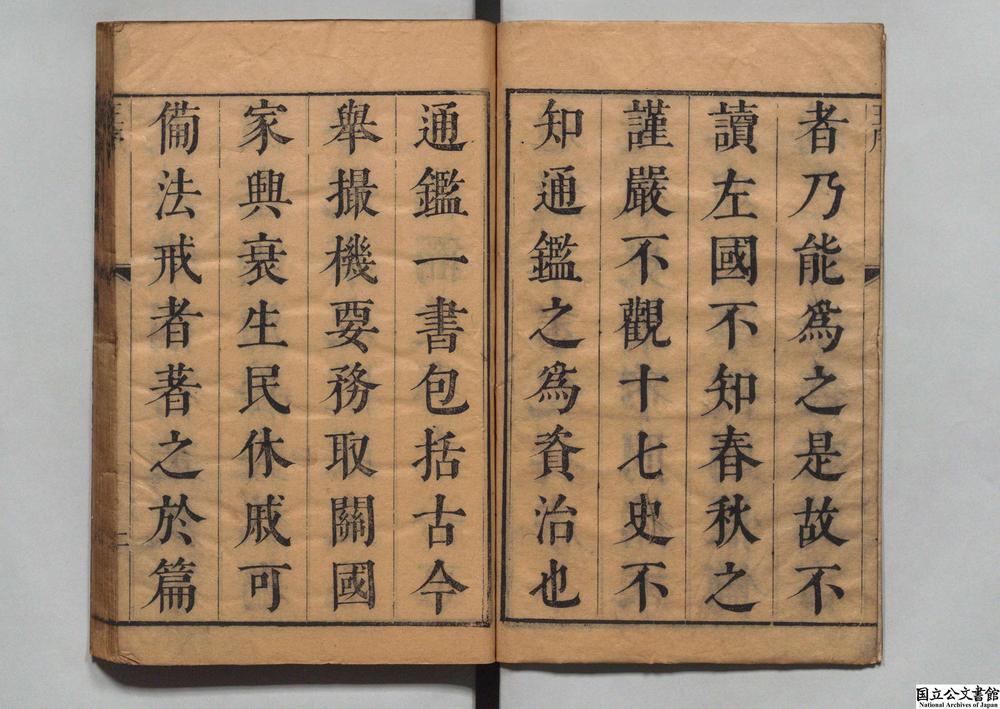 者乃能爲之是故不
讀左國不知春秋之
謹嚴不觀十七史不
知通鑑之爲資治也
通鑑一書包括古今
舉撮機要務取關國
家興衰生民休戚可
備法戒者著之於篇
国立公文書館
National Archives of Japan